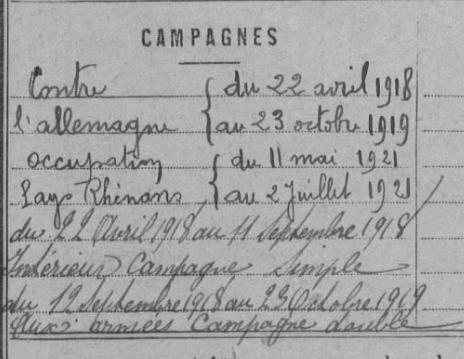 CAMPAGNES
Contre { du 22 avril 1918
l'allemagne { au 23 octobre 1919
occupation { du 11 mai 1921
Pays Rhénans { au 2 Juillet 1921
du 22 Avril 1918 au 11 Septembre 1918
Intérieur Campagne simple
du 12 Septembre 1918 au 23 Octobre 1919
Aux armées Campagne double